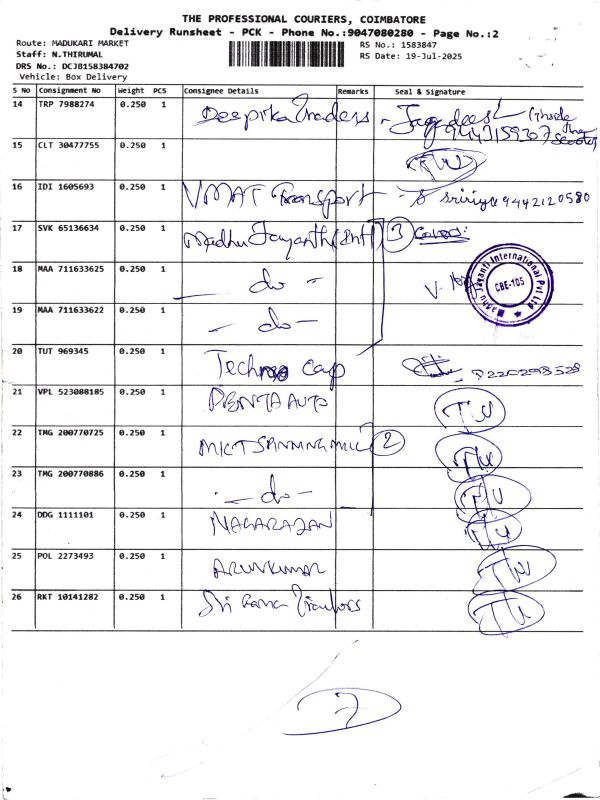 THE PROFESSIONAL COURIERS, COIMBATORE
Delivery Runsheet - PCK - Phone No.:9047080280 - Page No.:2
Route: MADUKARI MARKET
Staff: N.THIRUMAL
DRS No.: DCJB158384702
Vehicle: Box Delivery
RS No.: 1583847
RS Date: 19-Jul-2025
S No Consignment No Weight PCS Consignee Details Remarks Seal & Signature
14 TRP 7988274 0.250 1 Deepika Traders
15 CLT 30477755 0.250 1
16 IDI 1605693 0.250 1 VMAT Transport - S sririya 9442120580
17 SVK 65136634 0.250 1 Madhu Jayanthi (Int) 3
18 MAA 711633625 0.250 1 - do -
19 MAA 711633622 0.250 1 - do -
Madhu Jayanti International Pvt Ltd
CBE-105
20 TUT 969345 0.250 1 Techno Cap
21 VPL 523088185 0.250 1 PENTA AUTO TU
22 TMG 200770725 0.250 1 2 TU
23 TMG 200770886 0.250 1 - do - TU
24 DDG 1111101 0.250 1 NAGARAJAN TU
25 POL 2273493 0.250 1 ARUNKUMAR TU
26 RKT 10141282 0.250 1 Sri Rama TU
7